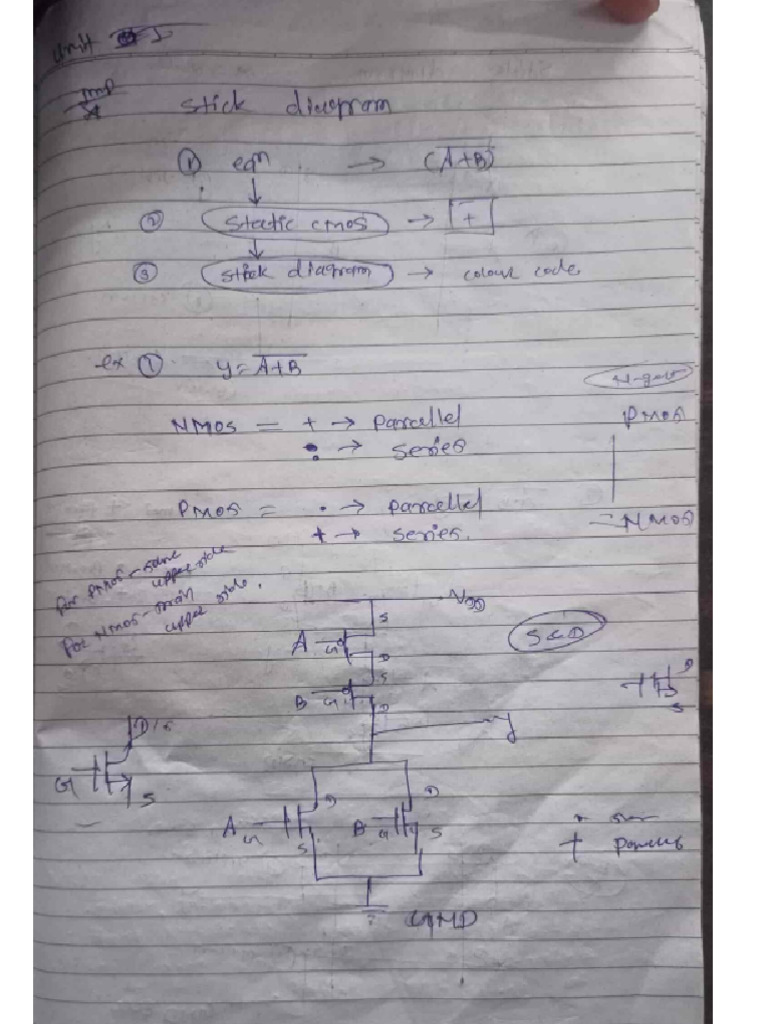 Unit I
Imp
Stick diagram
① eqn → (A+B)
↓
② Static cmos → +
↓
③ Stick diagram → colour code
ex ① y = A+B
NMOS = + → Parcellel
• → series
PMOS
PMOS = • → Parcellel
NMOS
+ → series.
for PMOS - source upper side
for NMOS - drain upper side.
VDD
S
A G
S & D
D
S
B G
D
D
S
y
D/S
G
S
D
D
A G
B G
S
S
+
GND